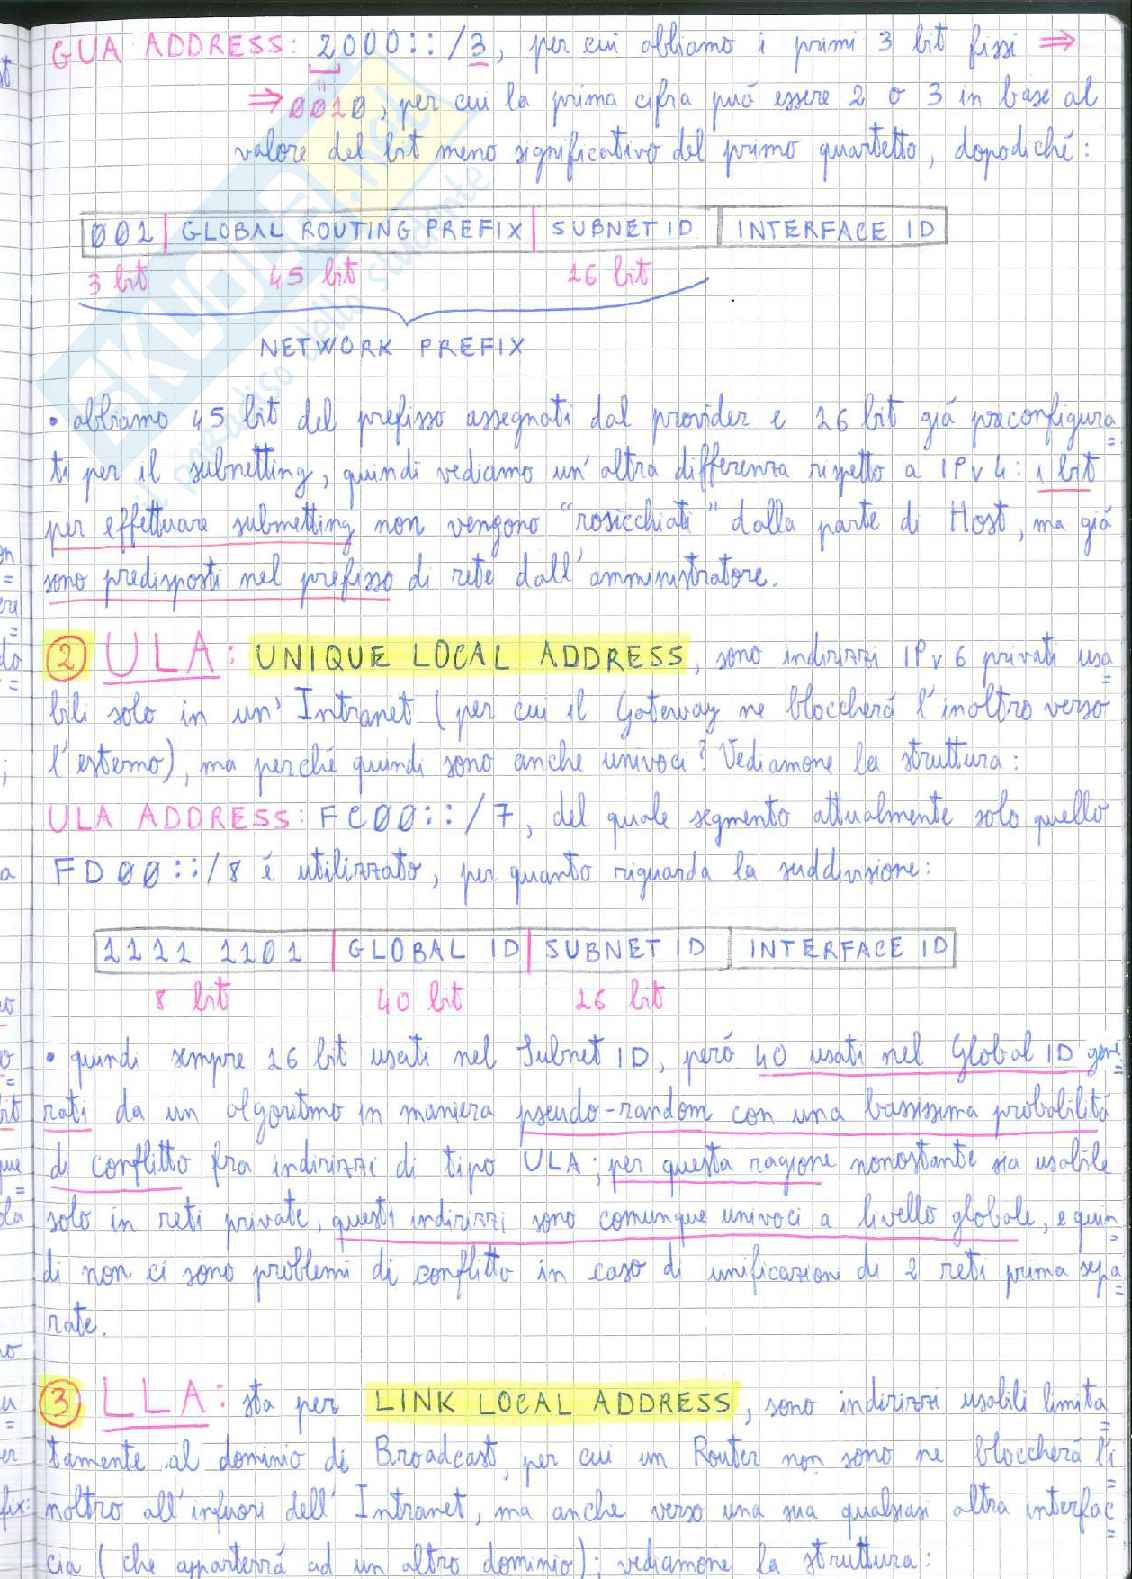 GUA ADDRESS: 2000::/3, per cui abbiamo i primi 3 bit fissi ⇒
⇒ 0010, per cui la prima cifra può essere 2 o 3 in base al
valore del bit meno significativo del primo quartetto, dopodiché:
001 | GLOBAL ROUTING PREFIX | SUBNET ID | INTERFACE ID
3 bit 45 bit 16 bit
NETWORK PREFIX
• abbiamo 45 bit del prefisso assegnati dal provider e 16 bit già preconfigura=
ti per il subnetting, quindi vediamo un'altra differenza rispetto a IPv4: i bit
per effettuare subnetting non vengono "rosicchiati" dalla parte di Host, ma già
sono predisposti nel prefisso di rete dall'amministratore.
② ULA: UNIQUE LOCAL ADDRESS, sono indirizzi IPv6 privati usa=
bili solo in un' Intranet (per cui il Gateway ne bloccherà l'inoltro verso
l'esterno), ma perché quindi sono anche univoci? Vediamone la struttura:
ULA ADDRESS: FC00::/7, del quale segmento attualmente solo quello
FD00::/8 é utilizzato, per quanto riguarda la suddivisione:
1111 1101 | GLOBAL ID | SUBNET ID | INTERFACE ID
8 bit 40 bit 16 bit
• quindi sempre 16 bit usati nel Subnet ID, però 40 usati nel Global ID gene=
rati da un algoritmo in maniera pseudo-random con una bassissima probabilità
di conflitto fra indirizzi di tipo ULA; per questa ragione nonostante sia usabile
solo in reti private, questi indirizzi sono comunque univoci a livello globale, e quin=
di non ci sono problemi di conflitto in caso di unificazioni di 2 reti prima sepa=
rate.
③ LLA: sta per LINK LOCAL ADDRESS, sono indirizzi usabili limita=
tamente al dominio di Broadcast, per cui un Router non sono ne bloccherà l'i=
noltro all'infuori dell'Intranet, ma anche verso una sua qualsiasi altra interfac=
cia (che apparterrà ad un altro dominio); vediamone la struttura: